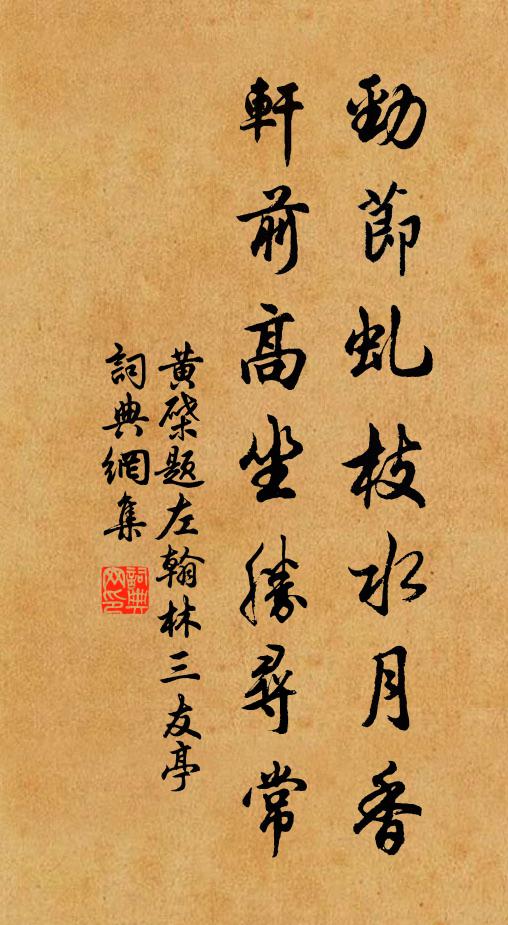 勁節虬枝水月香
軒前高坐勝尋常
黄檗題左翰林三友亭
詞典網集
詞典網印